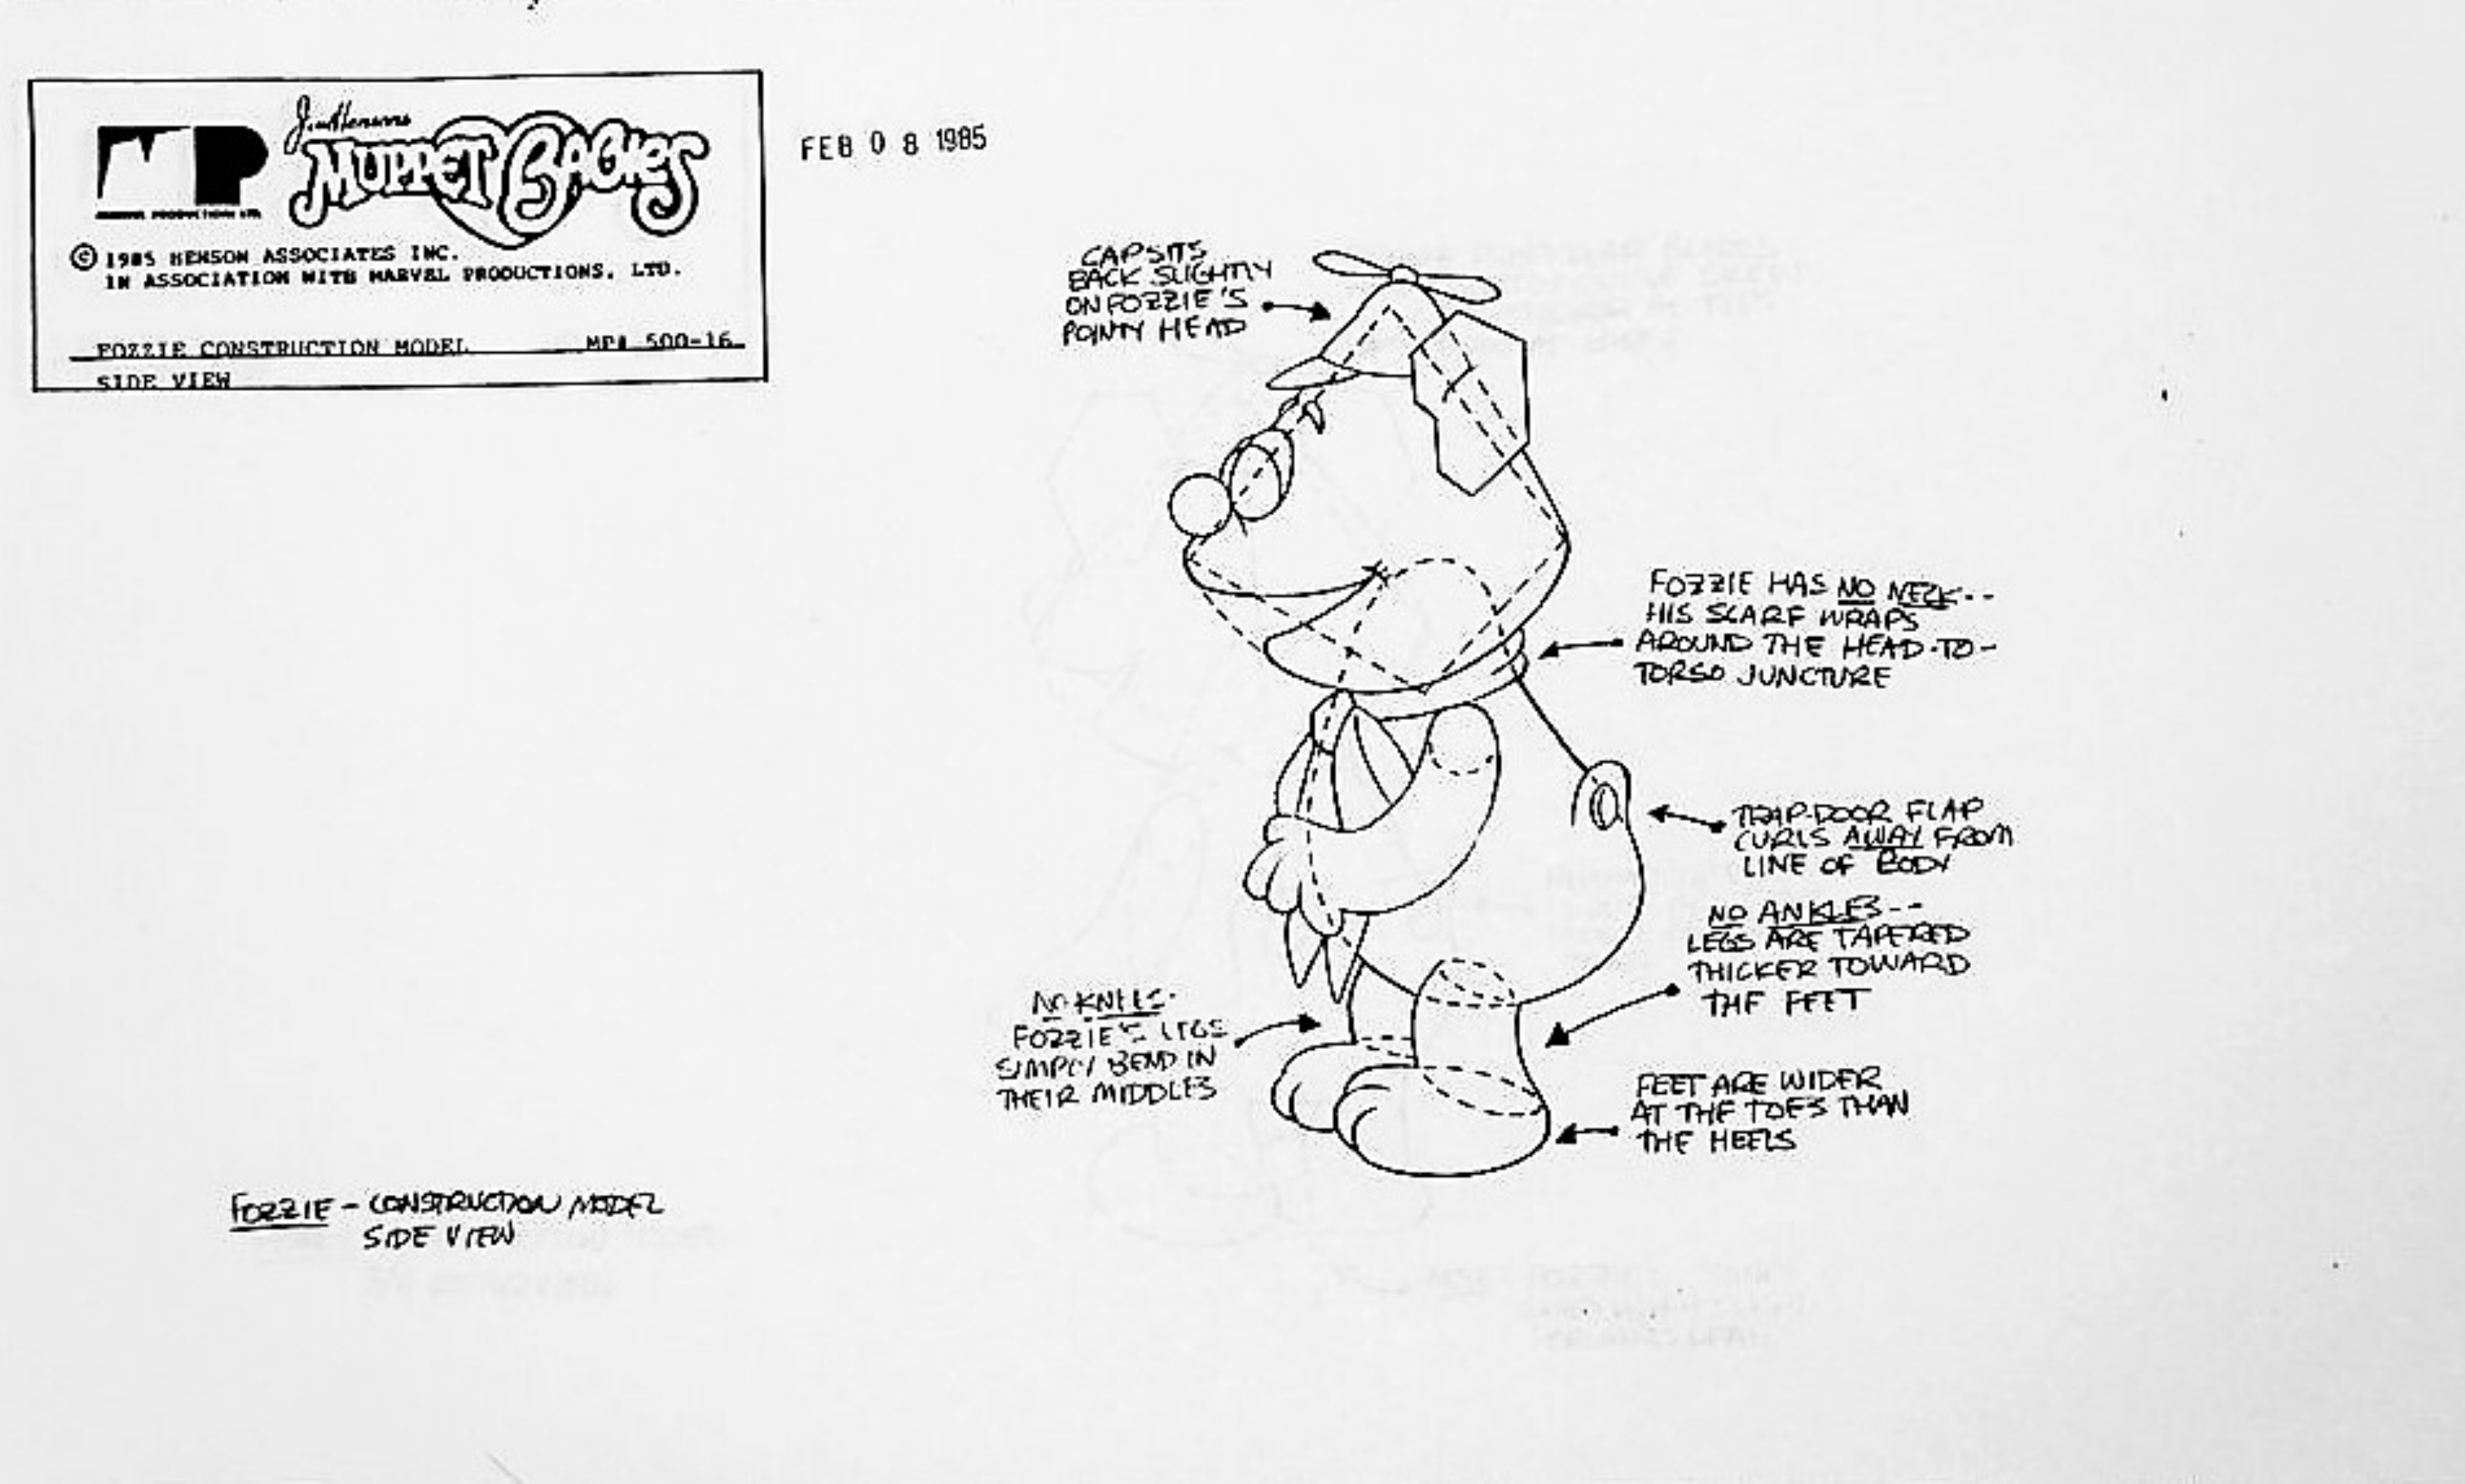 Jim Henson's
MUPPET BABIES
MP
MARVEL PRODUCTIONS LTD.
© 1985 HENSON ASSOCIATES INC.
IN ASSOCIATION WITH MARVEL PRODUCTIONS, LTD.
FOZZIE CONSTRUCTION MODEL MP# 500-16
SIDE VIEW
FEB 08 1985
CAP SITS
BACK SLIGHTLY
ON FOZZIE'S
POINTY HEAD
FOZZIE HAS NO NECK--
HIS SCARF WRAPS
AROUND THE HEAD-TO-
TORSO JUNCTURE
TRAP-DOOR FLAP
CURLS AWAY FROM
LINE OF BODY
NO ANKLES--
LEGS ARE TAPERED
THICKER TOWARD
THE FEET
NO KNEES-
FOZZIE'S LEGS
SIMPLY BEND IN
THEIR MIDDLES
FEET ARE WIDER
AT THE TOES THAN
THE HEELS
FOZZIE - CONSTRUCTION MODEL
SIDE VIEW